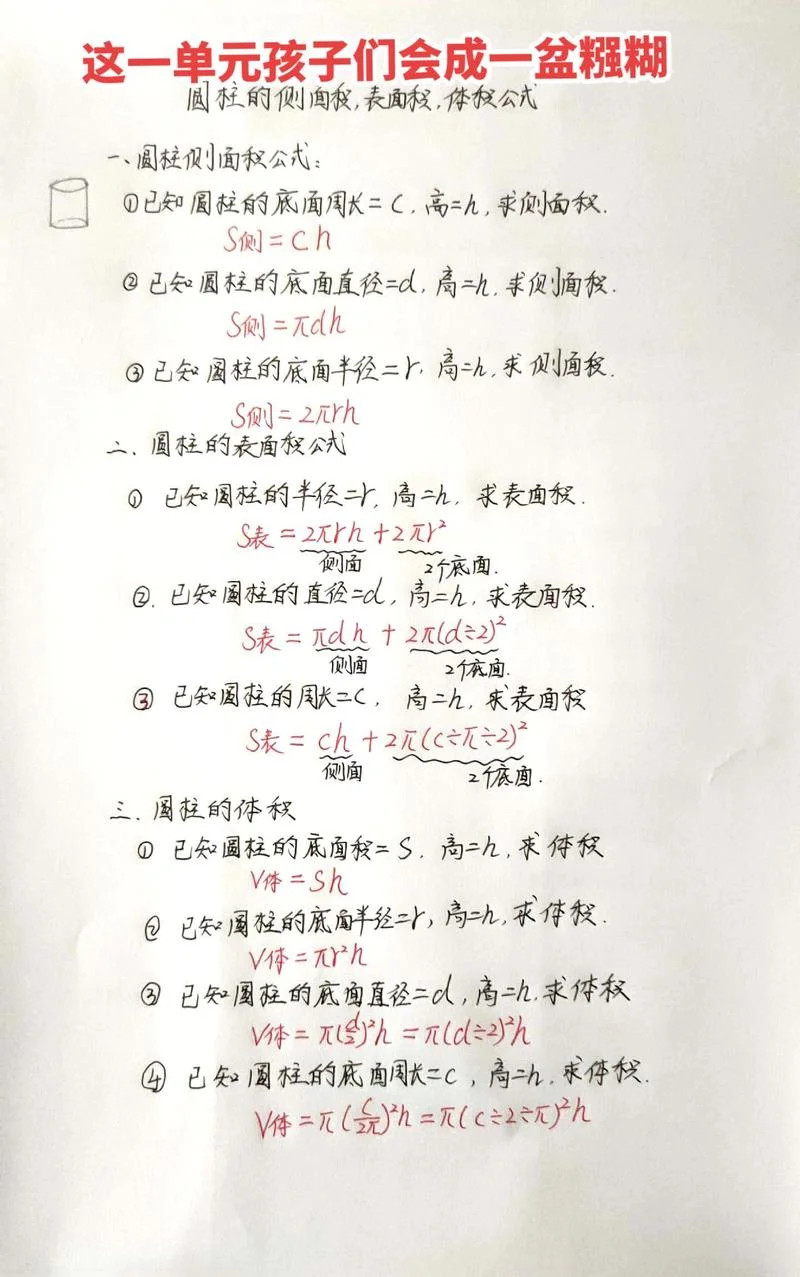 这一单元孩子们会成一盆糨糊
圆柱的侧面积,表面积,体积公式
一、圆柱侧面积公式:
①已知圆柱的底面周长=C,高=h,求侧面积.
S侧=Ch
②已知圆柱的底面直径=d,高=h,求侧面积.
S侧=πdh
③已知圆柱的底面半径=r,高=h,求侧面积.
S侧=2πrh
二、圆柱的表面积公式
① 已知圆柱的半径=r,高=h,求表面积.
S表=2πrh+2πr²
侧面 2个底面.
②.已知圆柱的直径=d,高=h,求表面积.
S表=πdh+2π(d÷2)²
侧面 2个底面.
③ 已知圆柱的周长=C,高=h,求表面积
S表=ch+2π(c÷π÷2)²
侧面 2个底面.
三.圆柱的体积
① 已知圆柱的底面积=S.高=h,求体积
V体=Sh
② 已知圆柱的底面半径=r,高=h,求体积.
V体=πr²h
③ 已知圆柱的底面直径=d,高=h,求体积
V体=π(d/2)²h=π(d÷2)²h
④ 已知圆柱的底面周长=c,高=h,求体积.
V体=π(c/2π)²h=π(c÷2÷π)²h